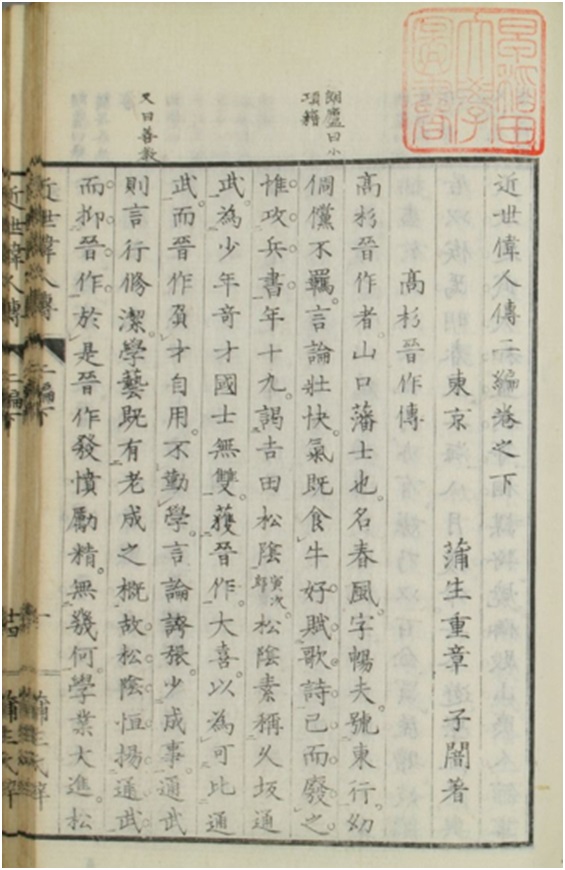 早稻田
大學
圖書
近世偉人傳二編卷之下
東京 蒲生重章 子闇著
高杉晉作傳
高杉晉作者山口藩士也。名春風。字暢夫。號東行。幼
倜儻不羈。言論壯快。氣既食牛。好賦歌詩。已而廢之。
曰小
項籍
惟攻兵書。年十九。謁吉田松陰寅次郎。松陰素稱久坂通
武。為少年奇才國士無雙。獲晉作。大喜。以為可比通
武。而晉作負才自用。不勤學。言論誇張。少成事。通武
又曰善教
則言行脩潔。學藝既有老成之概。故松陰恒揚通武
而抑晉作。於是晉作發憤勵精。無幾何學業大進。松
近世偉人傳 二編下 蒲生氏梓